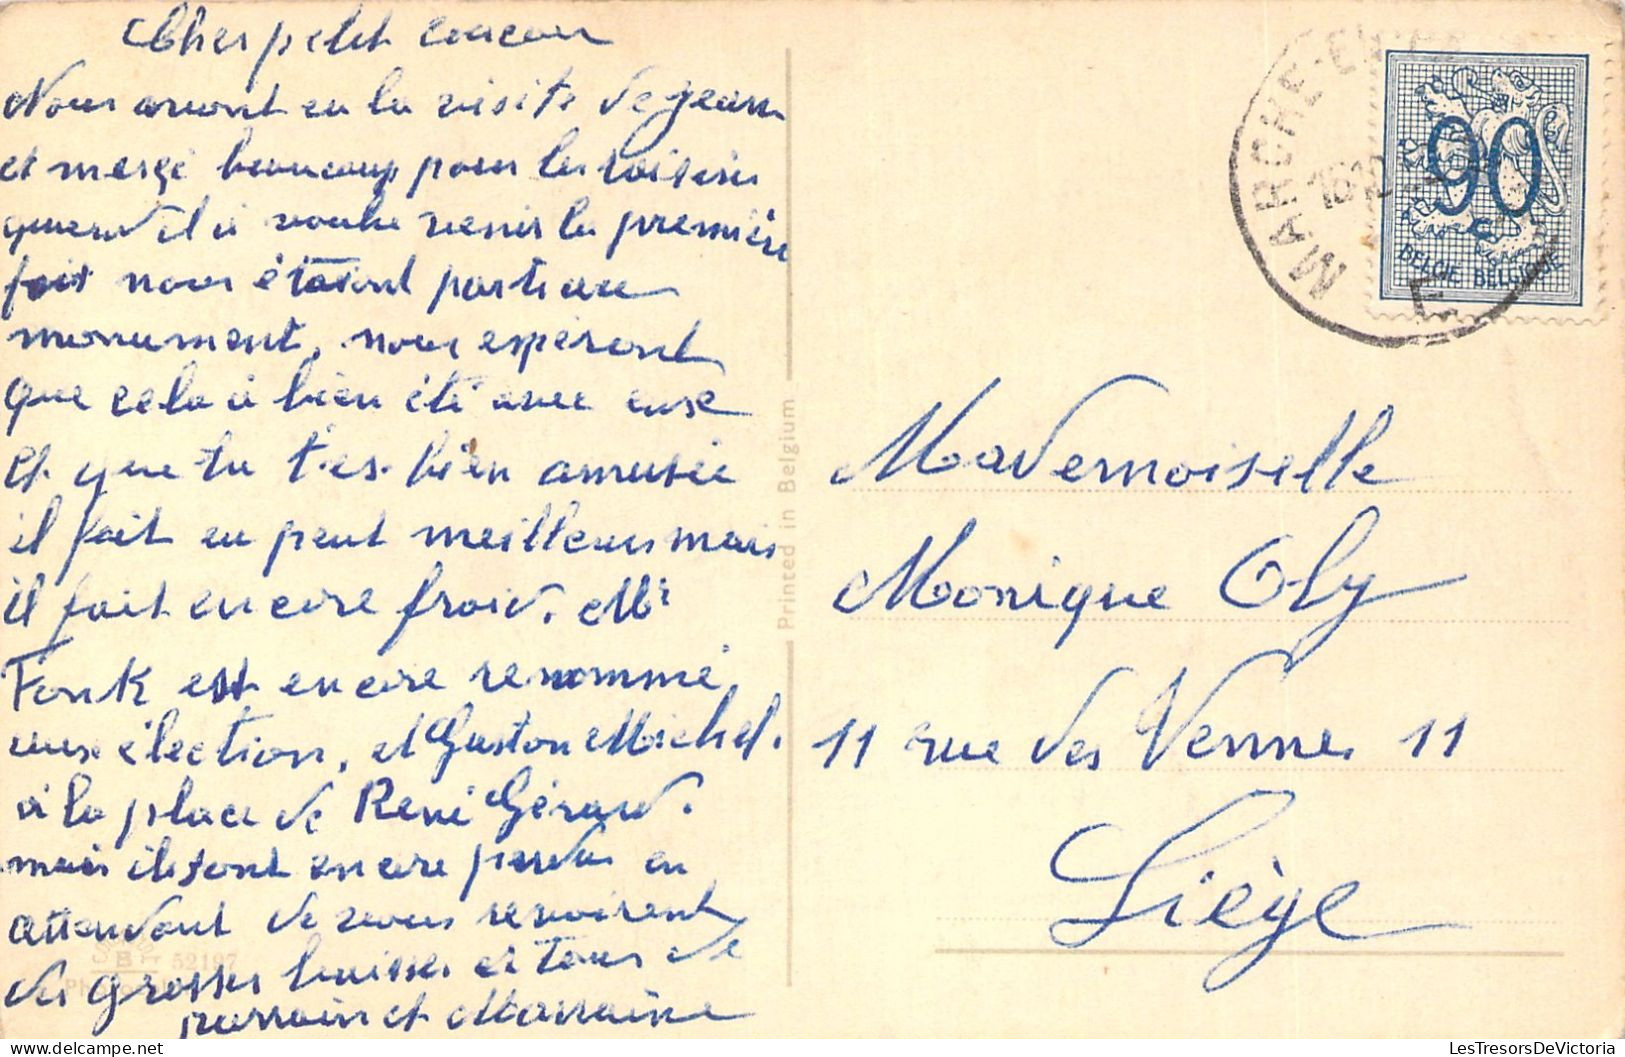 Cher petit coucou
Nous avont eu la visite de jean
et merçi beaucoup pour les
quand il à voulu venir la première
fois nous étaiont parti au
monument, nous espéront
que cela à bien été avec eux
et que tu t'es bien amusée
il fait eu peut meilleur mais
il fait encore froid. Mr
Fonk est encore renommé
aux élection, et Gaston Michel.
à la place de René Gérard.
mais ils sont encore perdu en
attendant de vous revoirent
des grosses baisses et tous de
parrain et Marraine
52197
Printed in Belgium
MARCHE-EN
90
BELGIE BELGIQUE
Mademoiselle
Monique Oly
11 rue des Vennes 11
Liège
LesTresorsDeVictoria.com